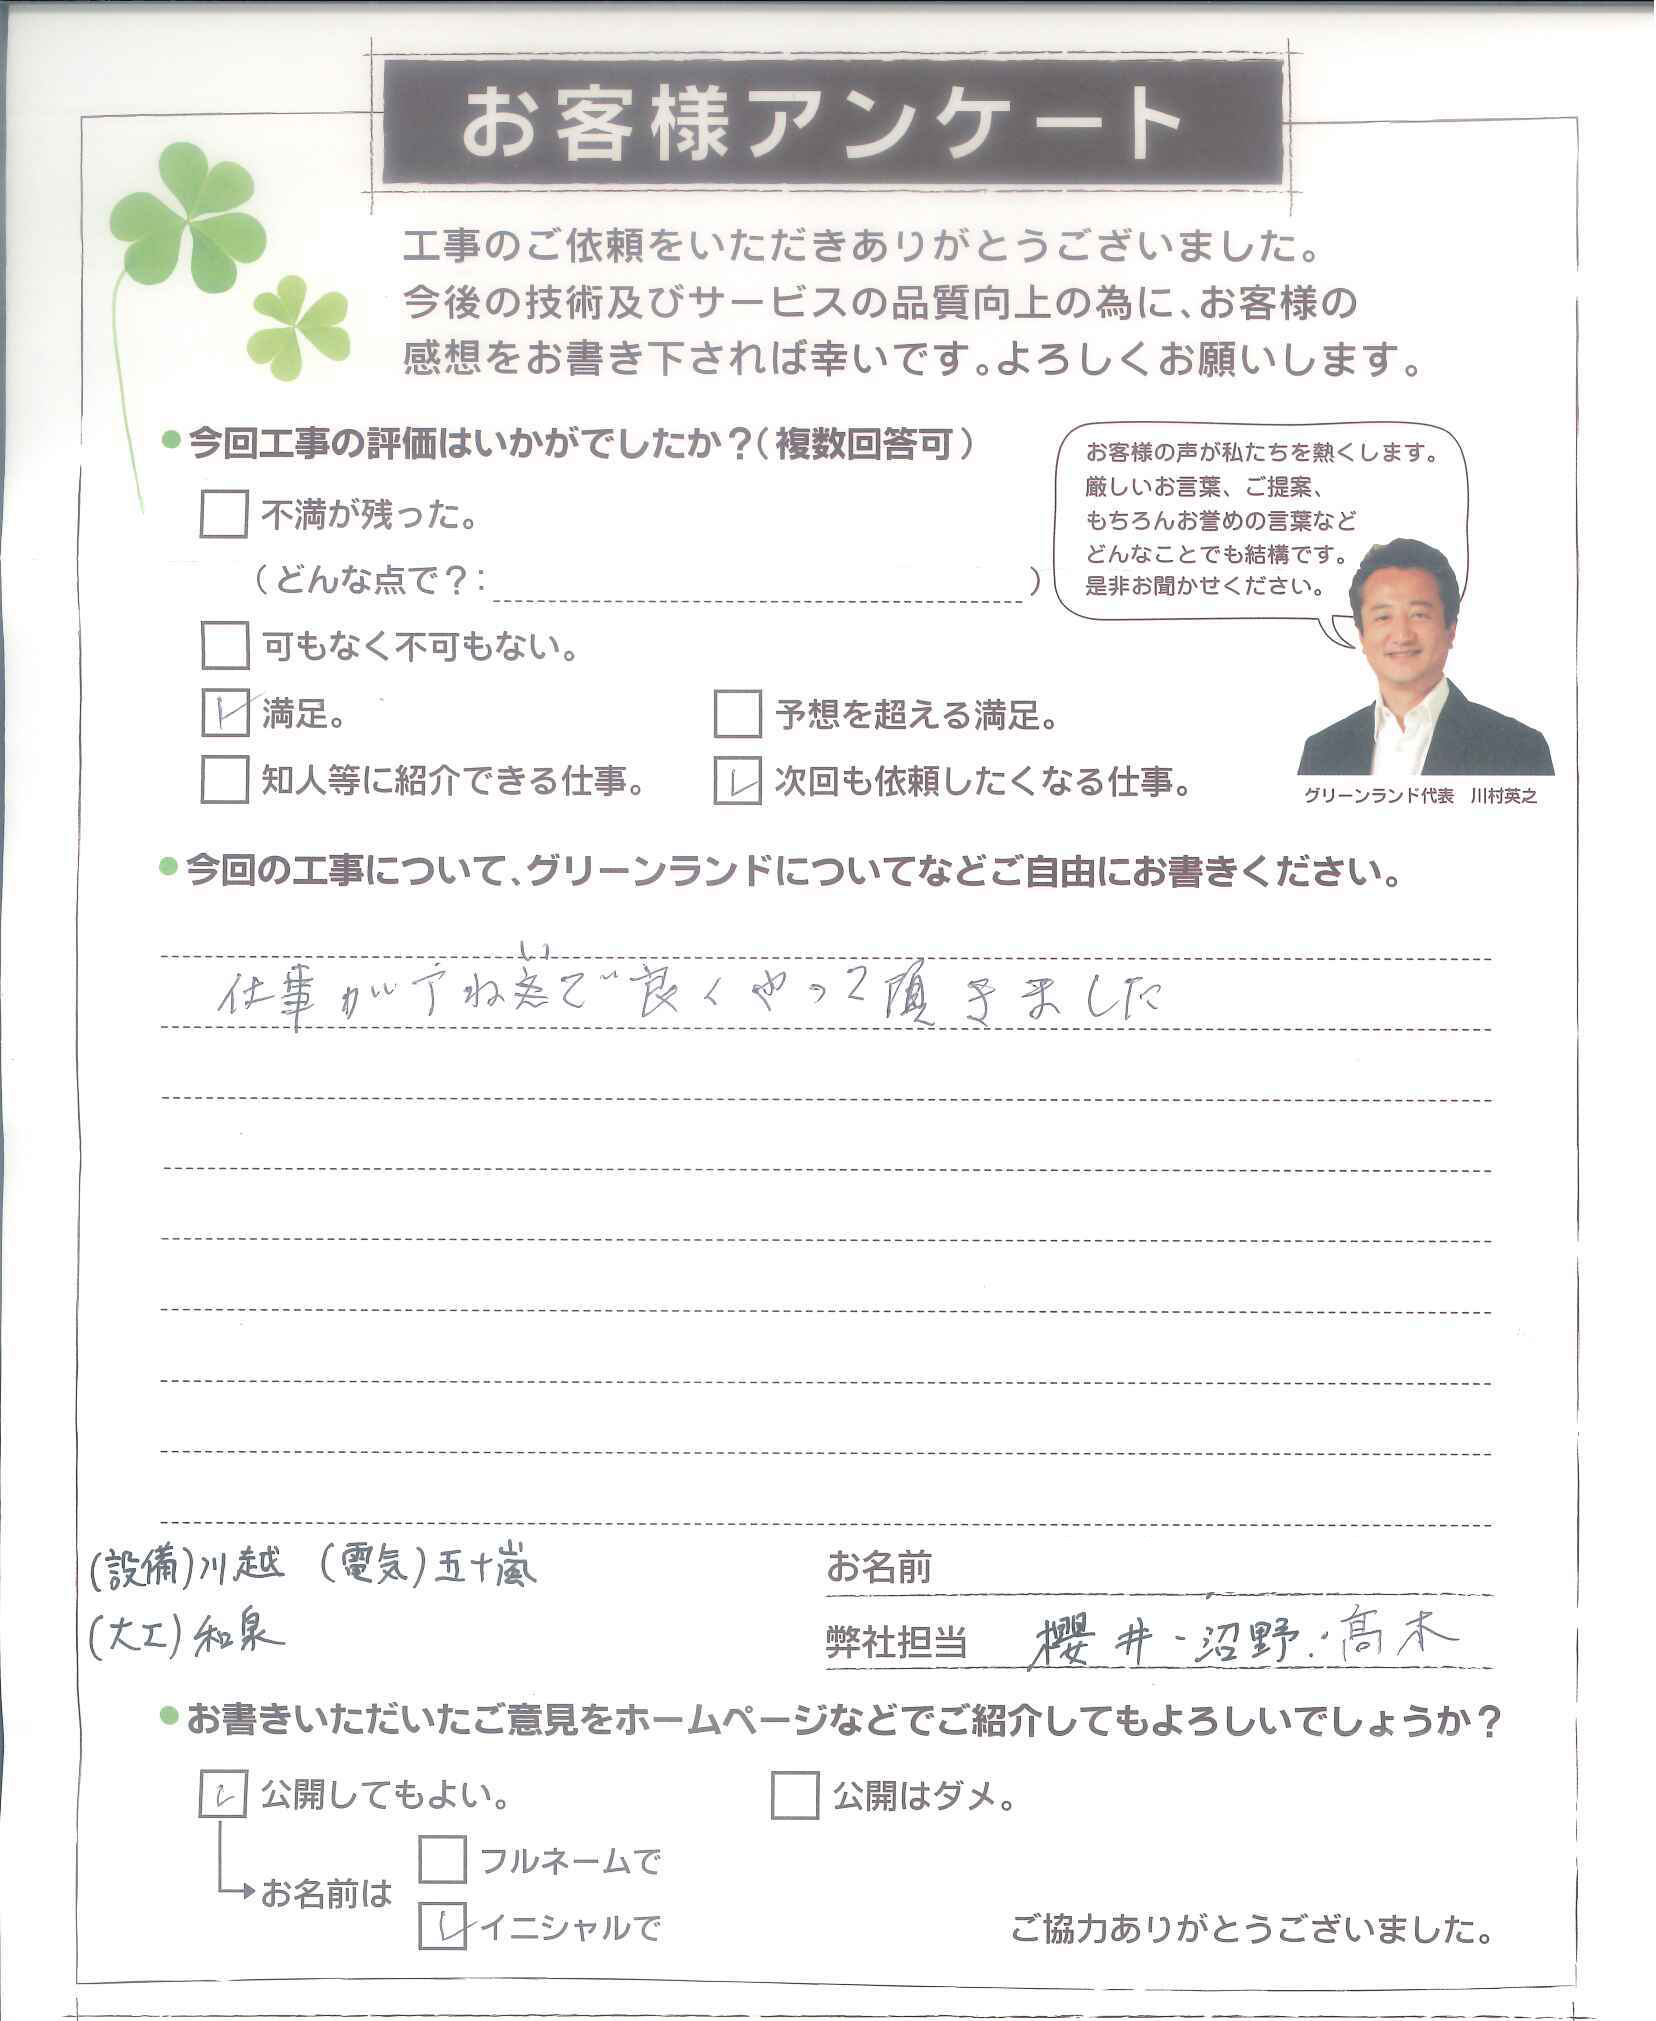 お客様アンケート
工事のご依頼をいただきありがとうございました。
今後の技術及びサービスの品質向上の為に、お客様の
感想をお書き下されば幸いです。よろしくお願いします。
●今回工事の評価はいかがでしたか？（複数回答可）
不満が残った。
（どんな点で？：　　　）
可もなく不可もない。
満足。
予想を超える満足。
知人等に紹介できる仕事。
次回も依頼したくなる仕事。
お客様の声が私たちを熱くします。
厳しいお言葉、ご提案、
もちろんお誉めの言葉など
どんなことでも結構です。
是非お聞かせください。
グリーンランド代表　川村英之
●今回の工事について、グリーンランドについてなどご自由にお書きください。
仕事が で良くやって頂きました
(設備)川越　(電気)五十嵐
(大工)和泉
お名前
弊社担当　櫻井・沼野・高木
●お書きいただいたご意見をホームページなどでご紹介してもよろしいでしょうか？
公開してもよい。
公開はダメ。
お名前は
フルネームで
イニシャルで
ご協力ありがとうございました。